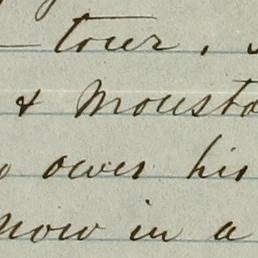 tour,
& Mousta
owes his
now in a